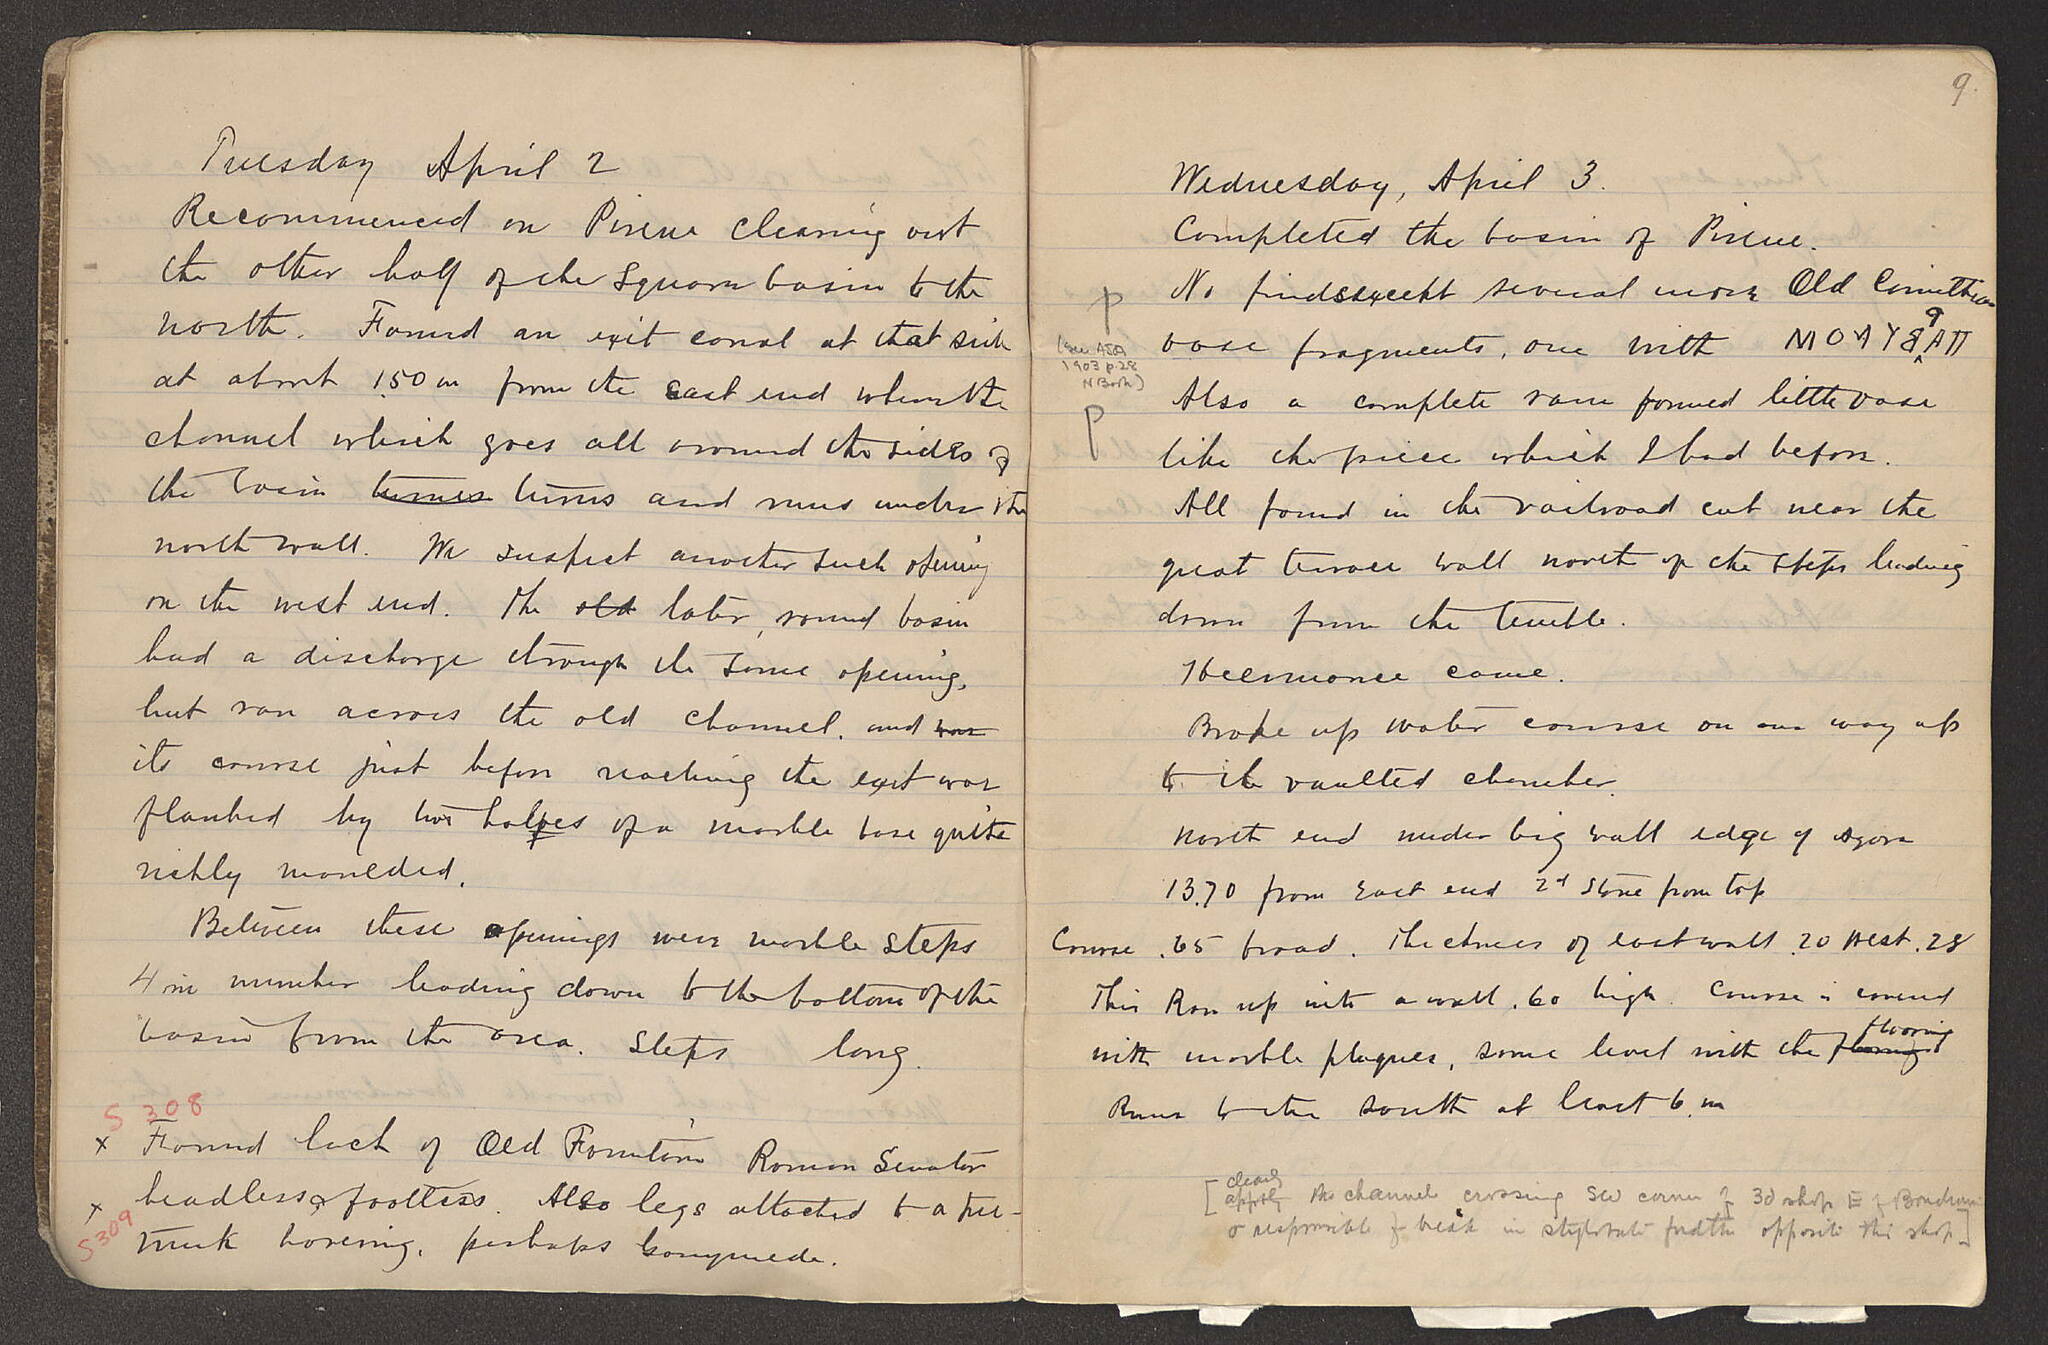 Tuesday April 2
Recommenced on Pirene clearing out
the other half of the square basin to the
north. Found an exit canal at that side
at about 1.50 m from the east end where the
channel which goes all around the sides of
the basin turns turns and runs under the
north wall. We suspect another such opening
on the west end. The old later, round basin
had a discharge through the same opening,
but ran across the old channel. and was
its course just before reaching the exit was
flanked by two halves of a marble base quite
richly moulded.
Between these openings were marble steps
4 in number leading down to the bottom of the
basin from the area. Steps long.
S 308
x Found back of Old Fountain Roman Senator
x headless & footless. Also legs attached to a tree-
S 309
trunk hovering, perhaps Ganymede.
9.
Wednesday, April 3.
Completed the basin of Pirene.
No finds except several more Old Corinthian
p
vase fragments, one with
(see AJA
1903 p. 28
N Book)
p
Also a complete ram formed little vase
like the piece which I had before.
All found in the railroad cut near the
great terrace wall north of the steps leading
down from the temple.
Heermance came.
Broke up water course on our way up
to the vaulted chamber.
North end under big wall edge of agora
13.70 from east end 2d stone from top
Course .65 broad. Thickness of east wall .20 West .28
This Ran up with a wall .60 high. Course is covered
with marble plaques, same level with the flooring
flooring
Runs to the south at least 6. m
[clearly
apply the channel crossing SW corner of 3d shop E of
& responsible for break in stylobate opposite this shop]